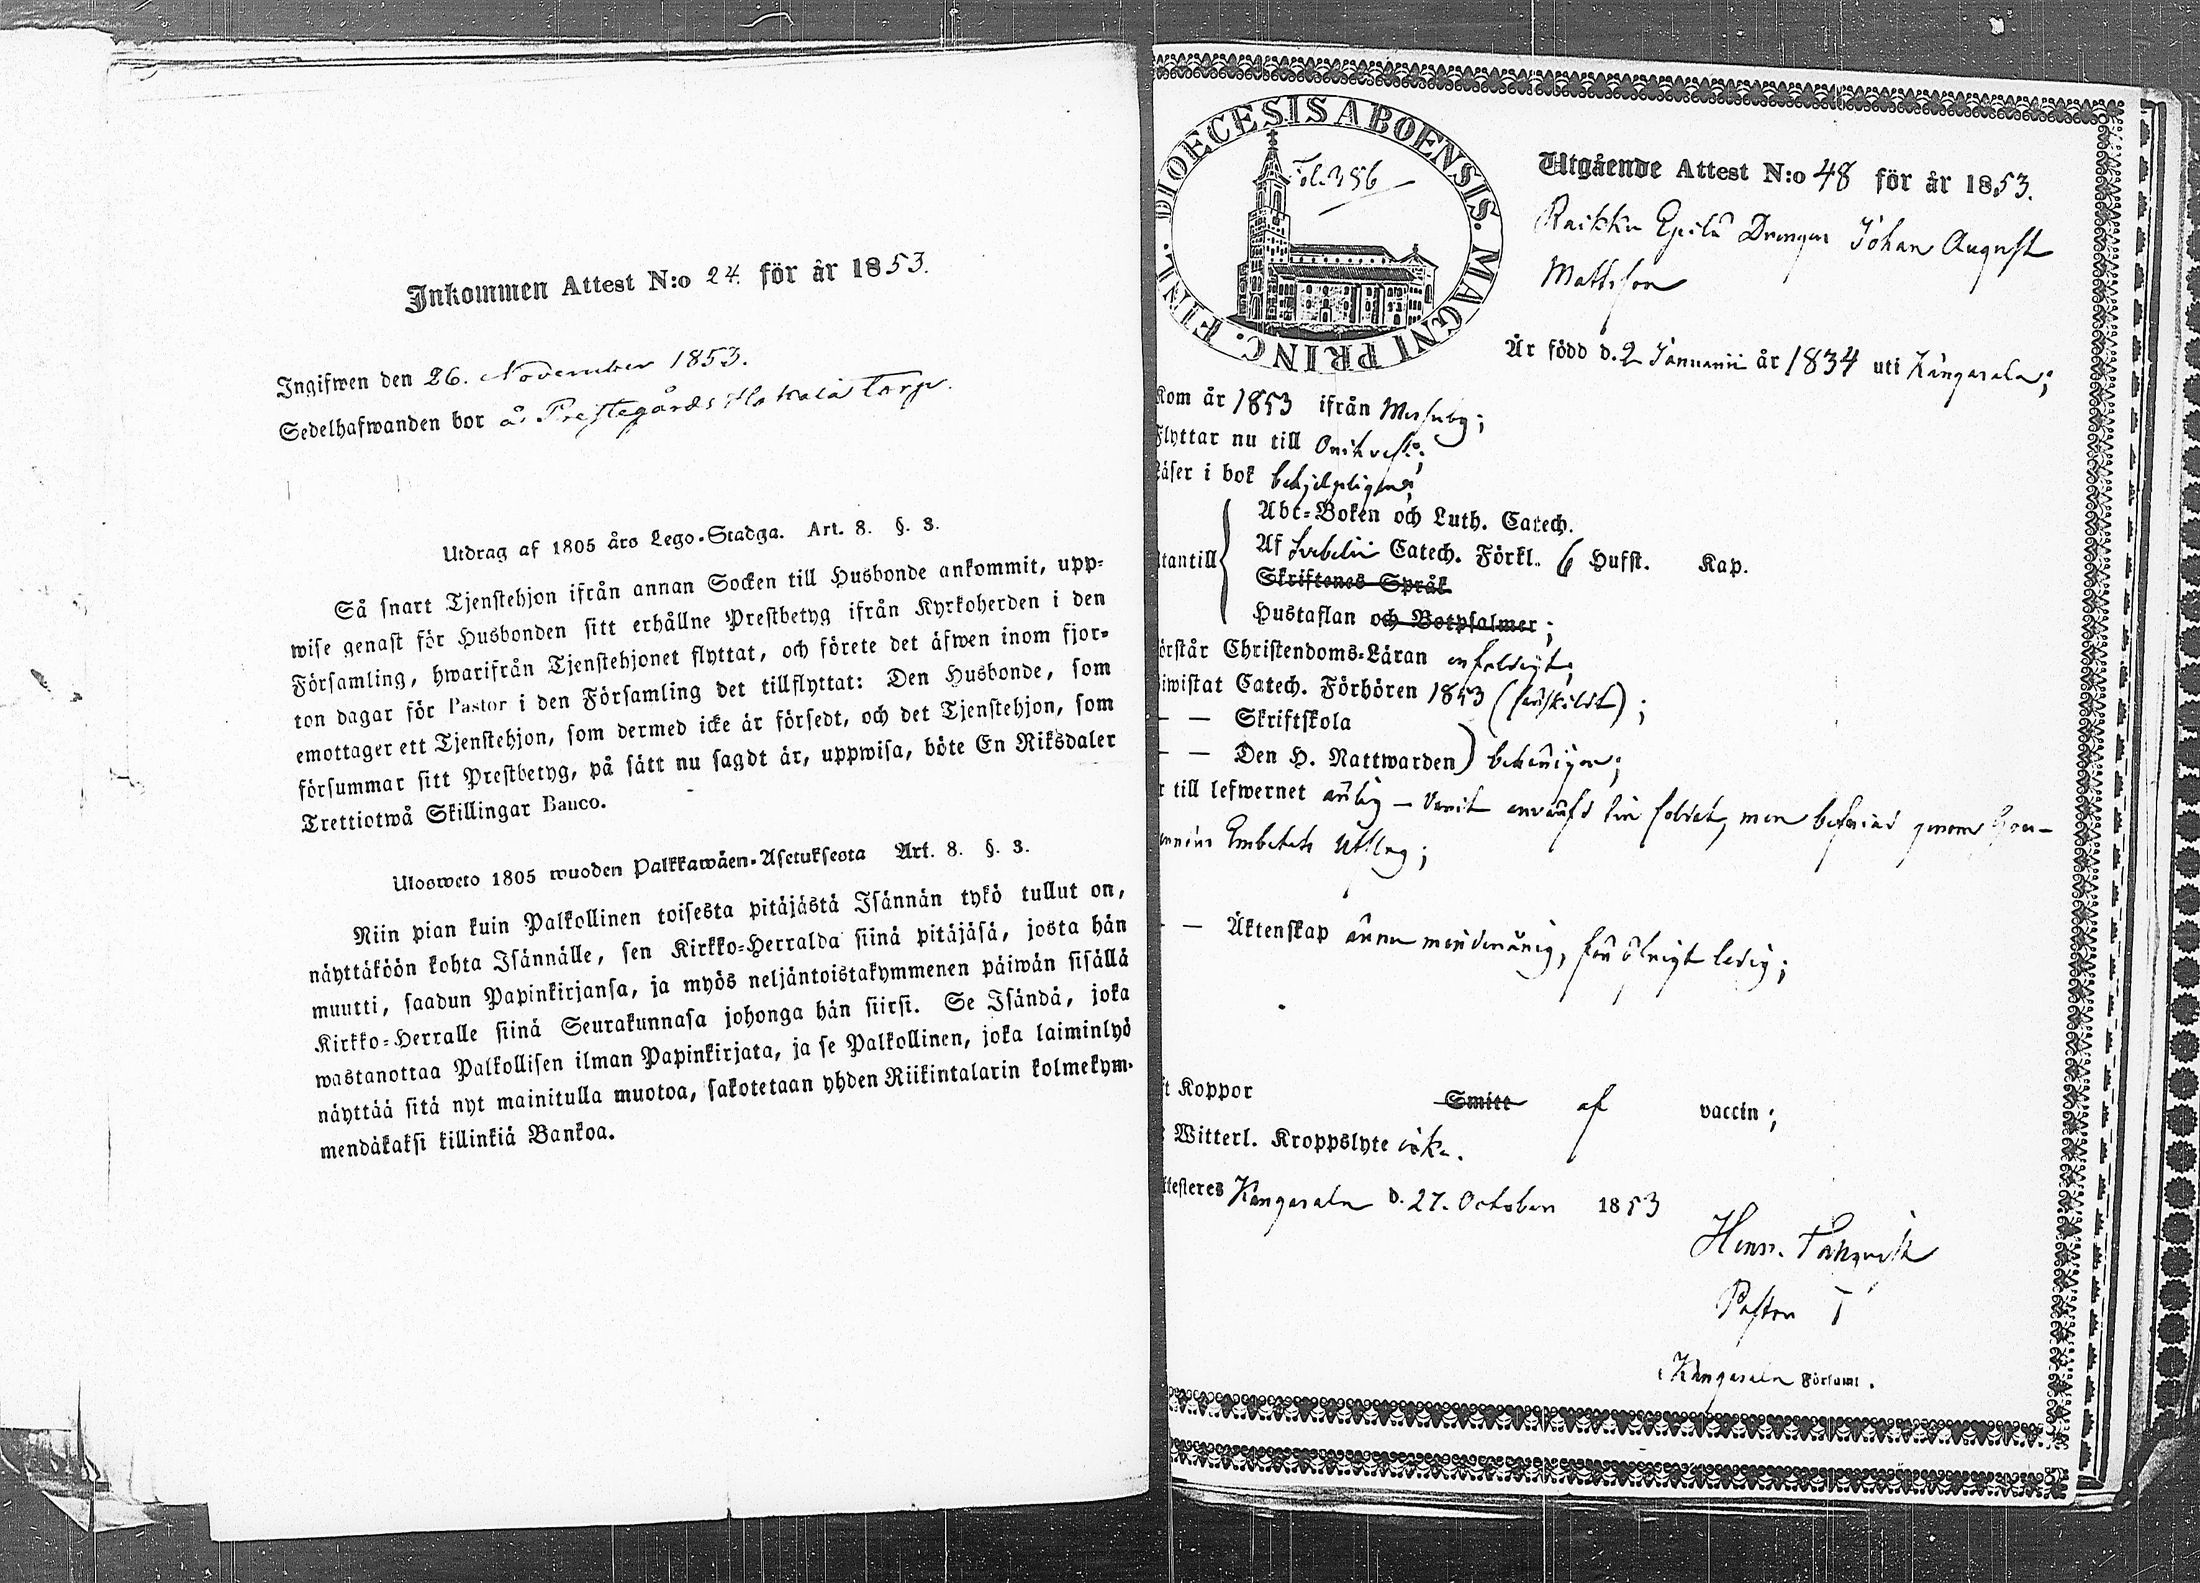 Inkommen Attest N:o 24. för år 1853.
Ingifwen den 26. November 1853.
Sedelhafwanden bor å Prestegårds Torp.
Utdrag af 1805 års Lego-Stadga. Art. 8. §. 3.
Så snart Tjenstehjon ifrån annan Socken till Husbonde ankommit, upp-
wise genast för Husbonden sitt erhållne Prestbetyg ifrån Kyrkoherden i den
Församling, hwarifrån Tjenstehjonet flyttat, och förete det äfwen inom fjor-
ton dagar för Pastor i den Församling det tillflyttat: Den Husbonde, som
emottager ett Tjenstehjon, som dermed icke är försedt, och det Tjenstehjon, som
försummar sitt Prestbetyg, på sätt nu sagdt är, uppwisa, böte En Riksdaler
Trettiotwå Skillingar Banco.
Ulosweto 1805 wuoden Palkkawäen-Asetuksesta Art. 8. §. 3.
Niin pian kuin Palkollinen toisesta pitäjästä Isännän tykö tullut on,
näyttäköön kohta Isännälle, sen Kirkko-Herralda siinä pitäjäsä, josta hän
muutti, saadun Papinkirjansa, ja myös neljäntoistakymmenen päiwän sisällä
Kirkko-Herralle siinä Seurakunnasa johonga hän siirsi. Se Isändä, joka
wastanottaa Palkollisen ilman Papinkirjata, ja se Palkollinen, joka laiminlyö
näyttää sitä nyt mainitulla muotoa, sakotetaan yhden Riikintalarin kolmekym-
mendäkaksi killinkiä Bankoa.
DIOECESIS ABOENSIS. MAGNI PRINC. FINL.
Fol. 356
Utgående Attest N:o 48 för år 1853.
Raikku Epilä Drengen Johan August
Mattsson
Är född d. 2 Januarii år 1834 uti Kangasala;
Kom år 1853 ifrån Messuby;
Flyttar nu till Orihvesi;
Läser i bok behjelpligen;
Utantill
Abc-Boken och Luth. Catech.
Af Svebelii Catech. Förkl. 6 Hufst. Kap.
Skriftenes Språk
Hustaflan och Botpsalmer;
örstår Christendoms-Läran enfaldigt;
iwistat Catech. Förhören 1853 (särskildt);
— — Skriftskola
— — Den H. Nattwarden) behörigen;
r till lefwernet ärlig — men befriad genom
Embetets Utslag;
— — Äktenskap ännu minderårig, för öfrigt ledig;
t Koppor Smitt af vaccin;
Witterl. Kroppslyte icke.
ttesteres Kangasala d. 27. October 1853
Henr.
Pastor
i Kangasala Församl.